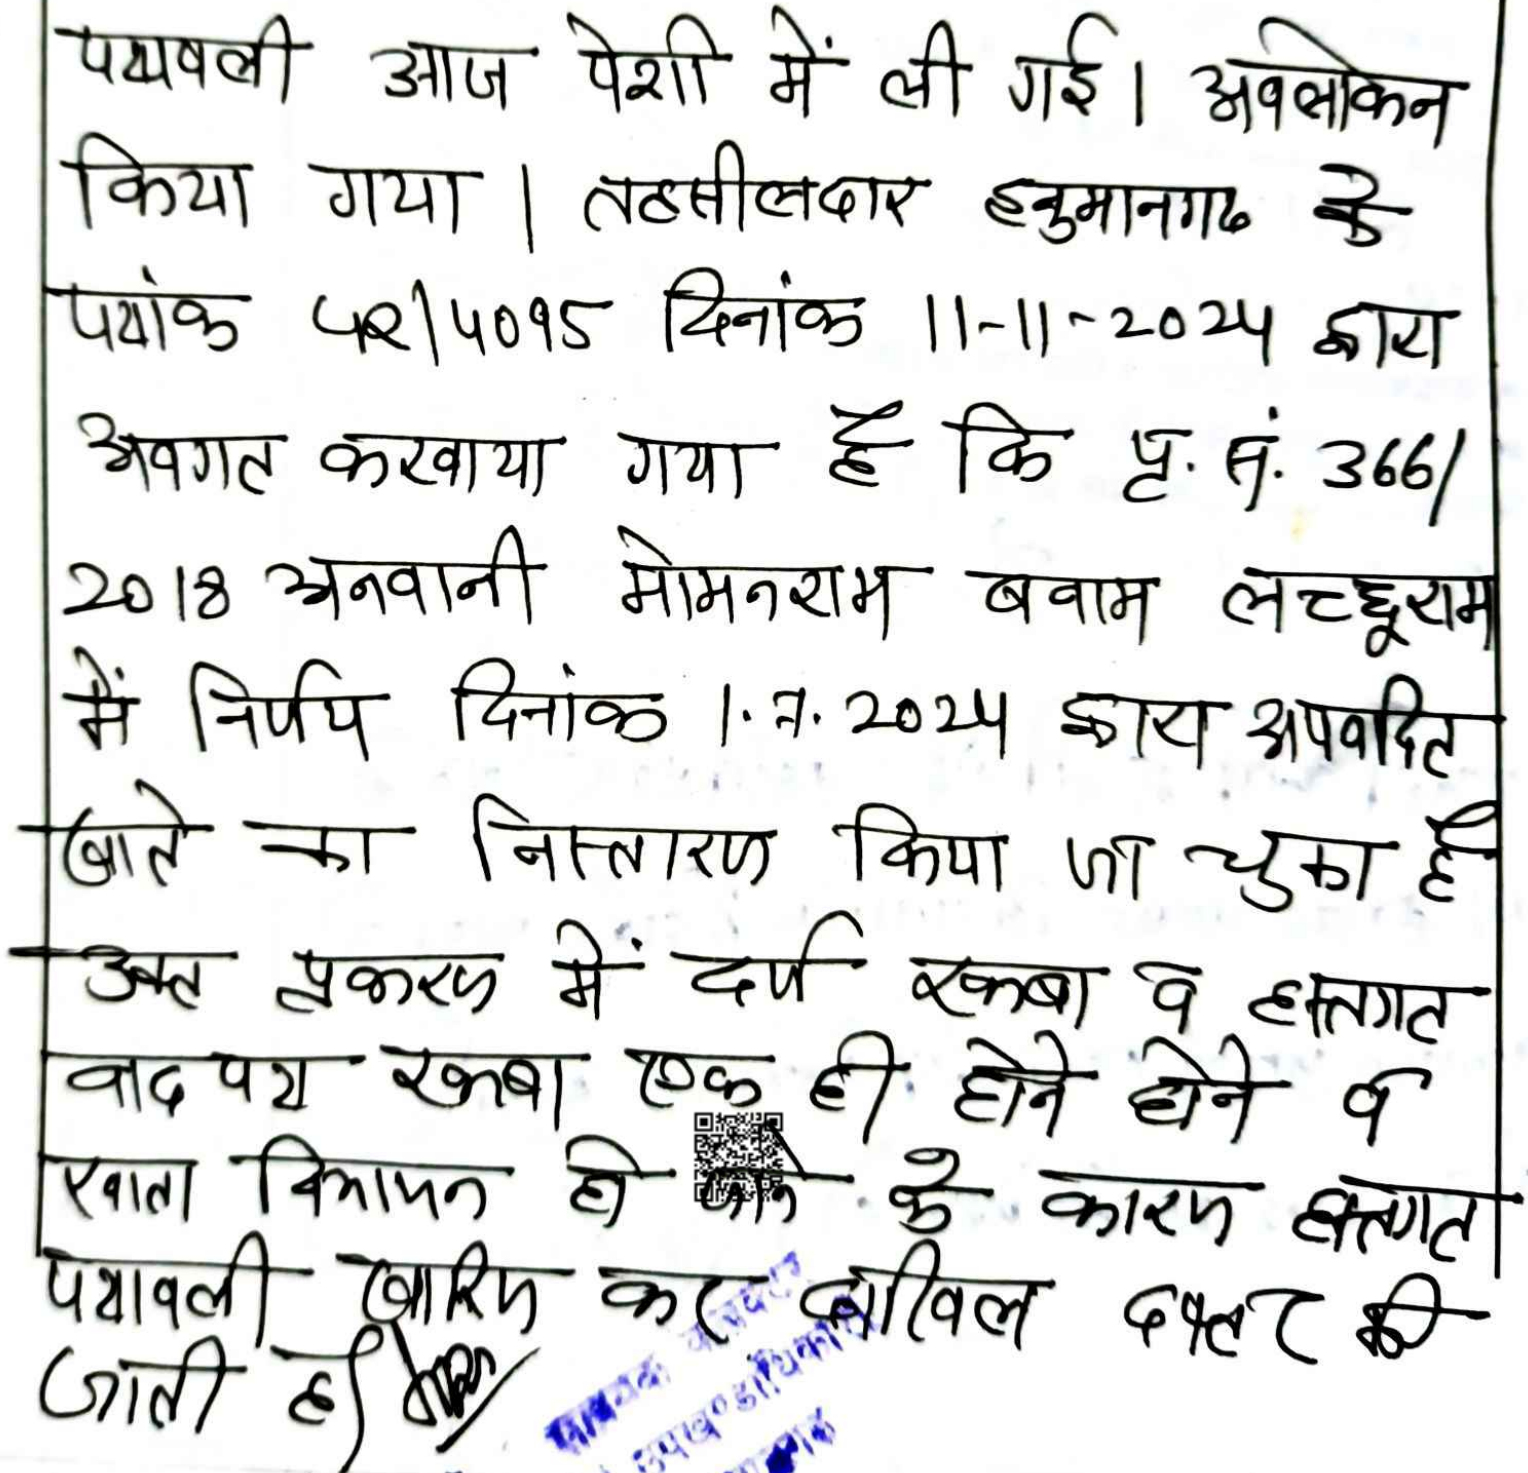 पत्रावली आज पेशी में ली गई। अवलोकन
किया गया। तहसीलदार हनुमानगढ के
पत्रांक 4095 दिनांक 11-11-2024 द्वारा
अवगत करवाया गया है कि प्र. सं. 366/
2018 अनवानी मोमनराम बनाम लच्छूराम
में निर्णय दिनांक 1.7.2024 द्वारा अपवदित
खाते का निस्तारण किया जा चुका है
उक्त प्रकरण में दर्ज रकबा व हस्तगत
वाद पत्र रकबा एक ही होने होने व
खाता विभाजन हो जाने के कारण हस्तगत
पत्रावली खारिज कर दाखिल दफ्तर की
जाती है।
सहायक कलक्टर
उपखण्डाधिकारी